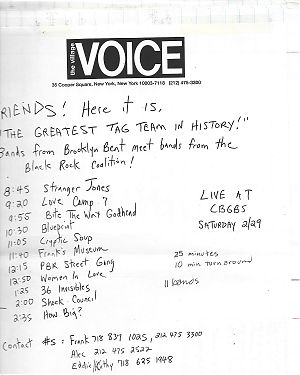 the village VOICE
36 Cooper Square, New York, New York 10003-7118 (212) 475-3300
RIENDS! Here it is,
"THE GREATEST TAG TEAM IN HISTORY!"
Bands from Brooklyn Beat meet bands from the
Black Rock Coalition!
8:45 Stranger Jones
9:20 Love Camp 7
9:55 Bite The Wax Godhead
10:30 Blueprint
11:05 Cryptic Soup
11:40 Frank's Museum
12:15 PBR Street Gang
12:50 Women In Love
1:25 36 Invisibles
2:00 Shock Council
2:35 How Big?
LIVE AT
CBGBS
SATURDAY 2/29
25 minutes
10 min turnaround
11 bands
Contact #s: Frank 718 837 1025, 212 475 3300
Alec 212 475 2522
Eddie/Kathy 718 625 1948